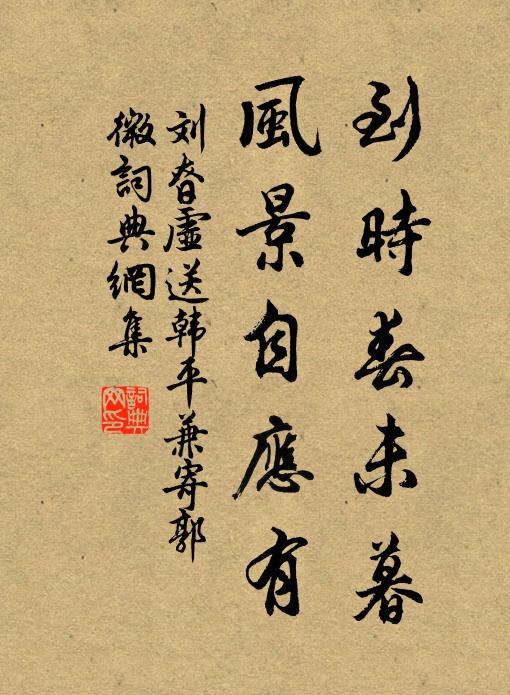 到時春未暮
風景自應有
刘昚虚送韩平兼寄郭
微詞典網集
詞典
网印